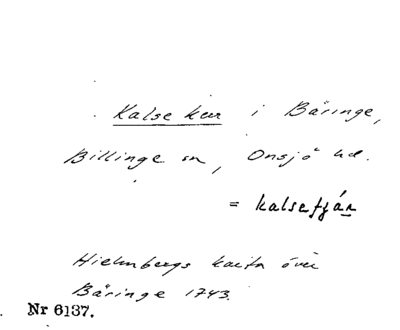 Kalse kær i Båringe,
Billinge sn, Onsjö hd.
= kalsefjár
Hielmbergs karta över
Båringe 1743.
Nr 6137.